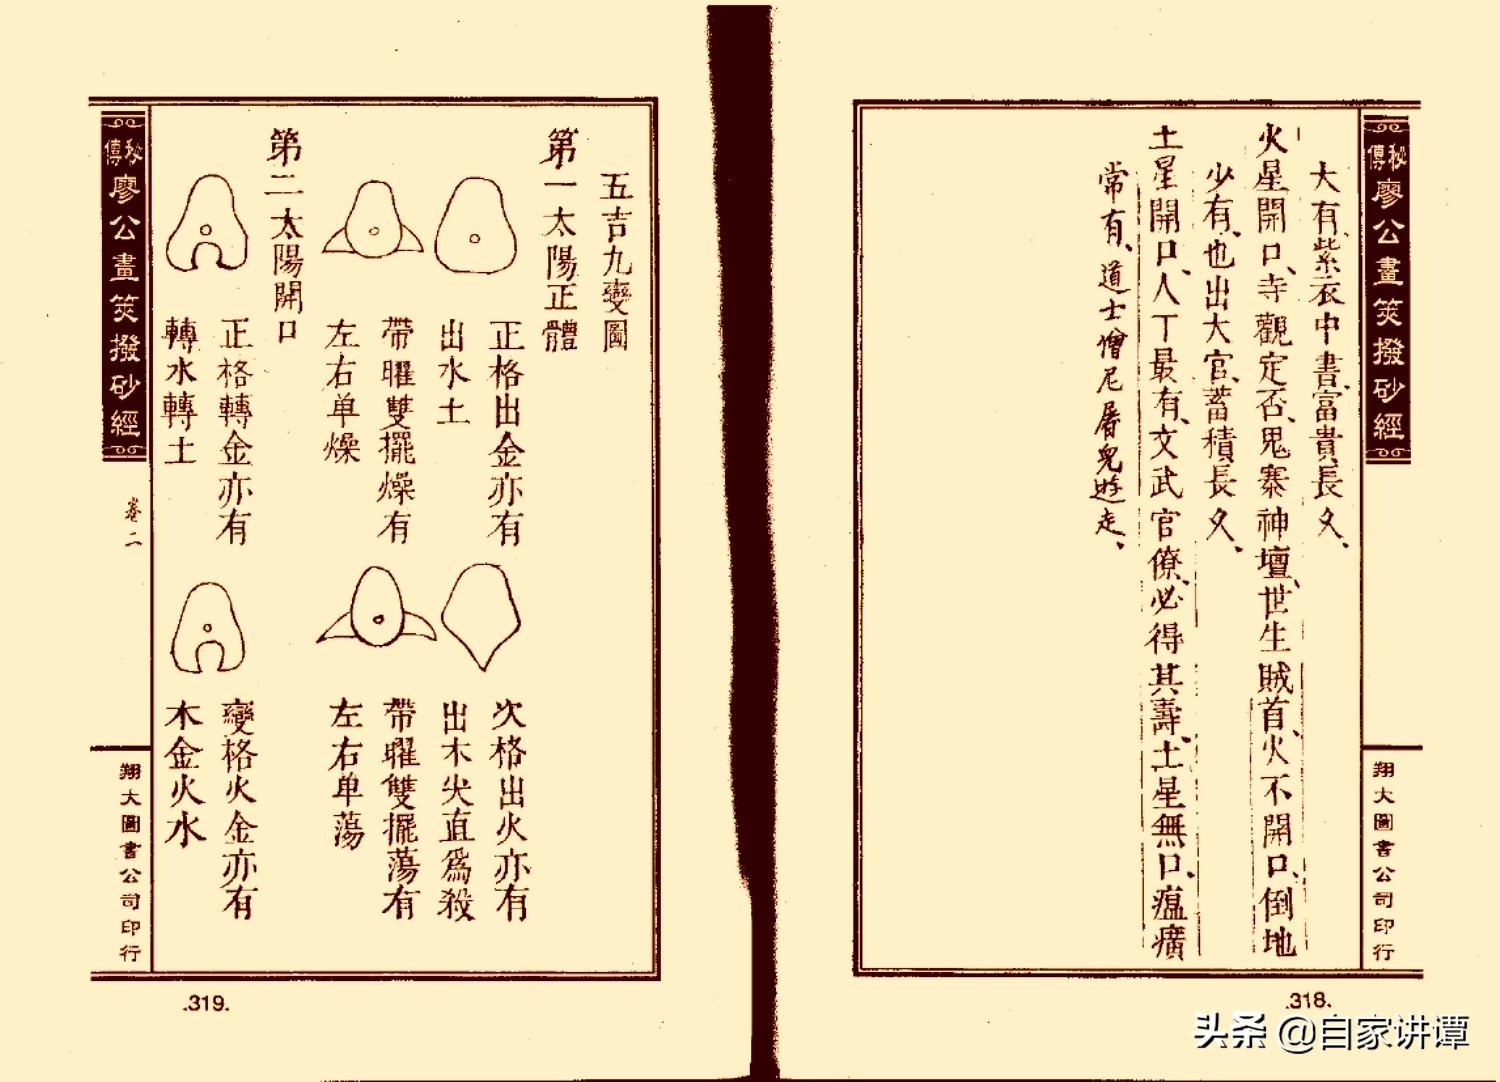 秘傳廖公畫筴撥砂經
大有、紫衣中書、富貴長久、
火星開口、寺觀定否、鬼寨神壇、世生賊首、火不開口、倒地
少有、也出大官、蓄積長久、
土星開口、人丁最有、文武官僚、必得其壽、土星無口、瘟㾱
常有、道士僧尼屠兒遊走、
翔大圖書公司印行
.318.
五吉九變圖
第一太陽正體
正格出金亦有
出水土
次格出火亦有
出木尖直為殺
帶曜雙擺燥有
左右单燥
帶曜雙擺蕩有
左右单蕩
第二太陽開口
正格轉金亦有
轉水轉土
變格火金亦有
木金火水
秘傳廖公畫筴撥砂經
卷二
翔大圖書公司印行
.319.
头条 @自家讲谭